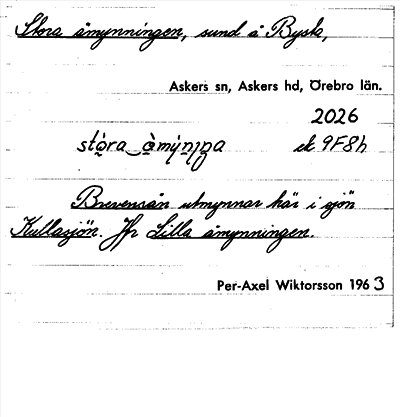 Stora åmynningen, sund å Bysta,
Askers sn, Askers hd, Örebro län.
2026
stó̰ra‿å̀mýnıŋa ek 9F8h
Brevensån utmynnar här i sjön
Kullasjön. Jfr Lilla åmynningen.
Per-Axel Wiktorsson 1963